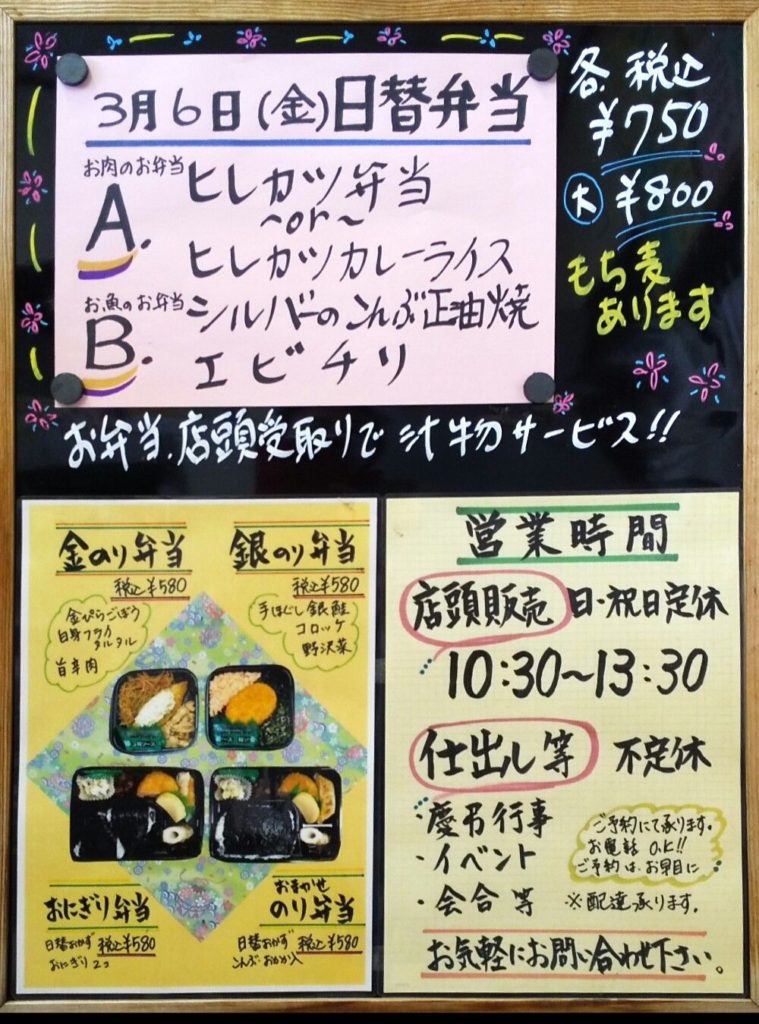 3月6日(金)日替弁当
お肉のお弁当
A.
ヒレカツ弁当
~or~
ヒレカツカレーライス
お魚のお弁当
B.
シルバーのこんぶ正油焼
エビチリ
各税込
¥750
大 ¥800
もち麦
あります
お弁当、店頭受取りで汁物サービス!!
金のり弁当
税込¥580
金ぴらごぼう
白身フライ
タルタル
旨辛肉
銀のり弁当
税込¥580
手ほぐし銀鮭
コロッケ
野沢菜
おにぎり弁当
日替おかず 税込¥580
おにぎり2コ
おまかせ
のり弁当
日替おかず 税込¥580
こんぶ・おかか入
営業時間
店頭販売 日・祝日定休
10:30~13:30
仕出し等 不定休
・慶弔行事
・イベント
・会合等
ご予約にて承ります。
お電話O.K!!
ご予約は、お早目に
※配達承ります。
お気軽にお問い合わせ下さい。